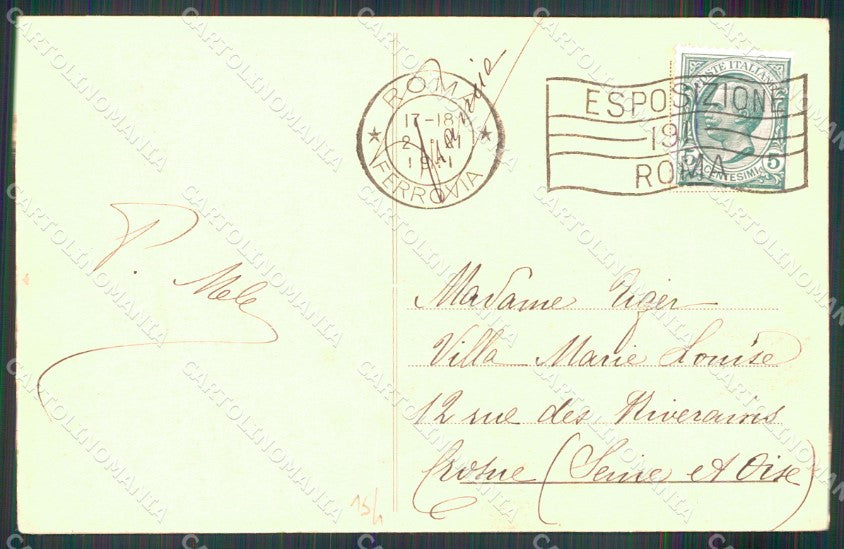 ROMA
17-18
FERROVIA
ESPOSIZIONE
191
ROMA
POSTE ITALIANE
5 5
CENTESIMI
P. Mele
Madame
Villa Marie Louise
12 rue des Riverains
Crosne (Seine et Oise)
15h
CARTOLINOMANIA